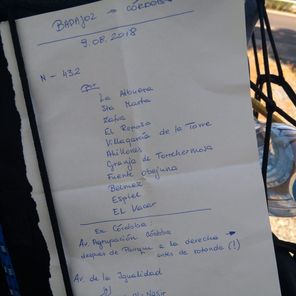 BADAJOZ → CÓRDOBA
9.08.2018
N-432
La Albuera
Sta Marta
Zafra
El Raposo
Villagarcía de la Torre
Ahillones
Granja de Torrehermosa
Fuente Obejuna
Belmez
Espiel
EL Vacar
En Córdoba:
Av. Agrupación Córdoba
después de Parque a la derecha →
antes de rotonda (!)
Av. de la Igualdad
Al-Nasir